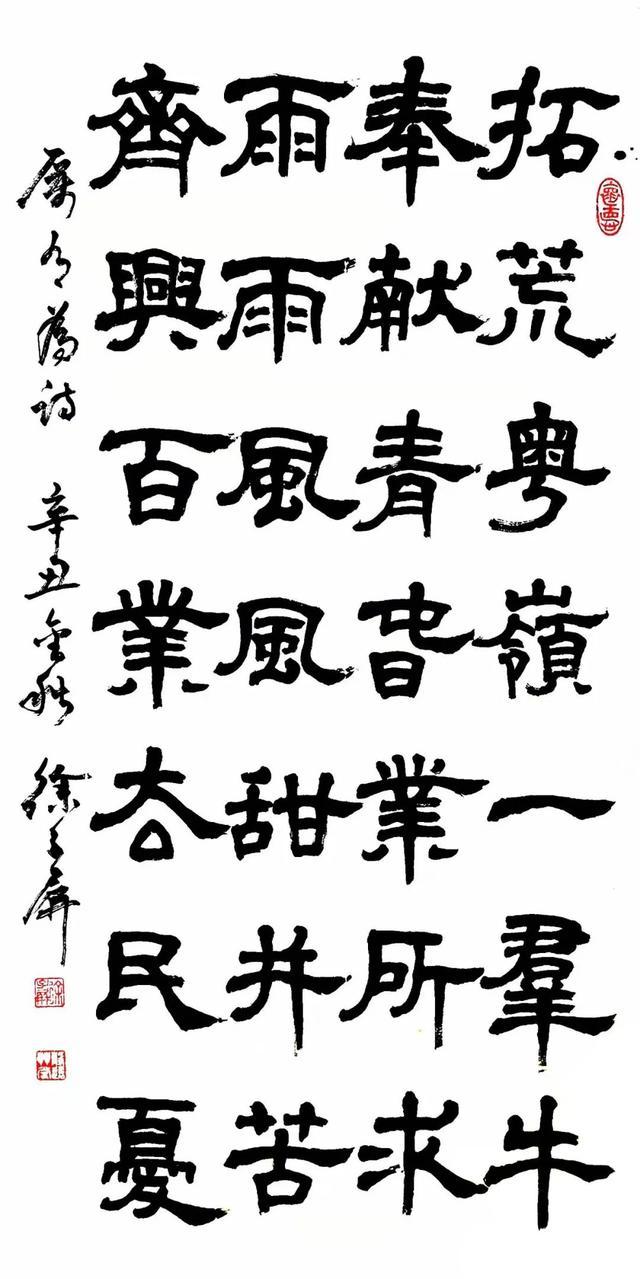 拓荒粵嶺一羣牛
奉献青旾業所求
雨雨風風甜并苦
齊興百業厺民憂
為诗 辛丑金秋 徐屏